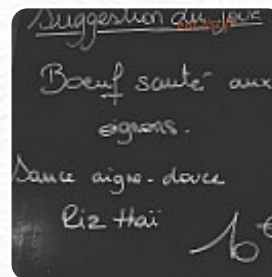 Suggestion du jour
Boeuf sauté aux
oignons.
Sauce aigre-douce
Riz Thaï
16 €